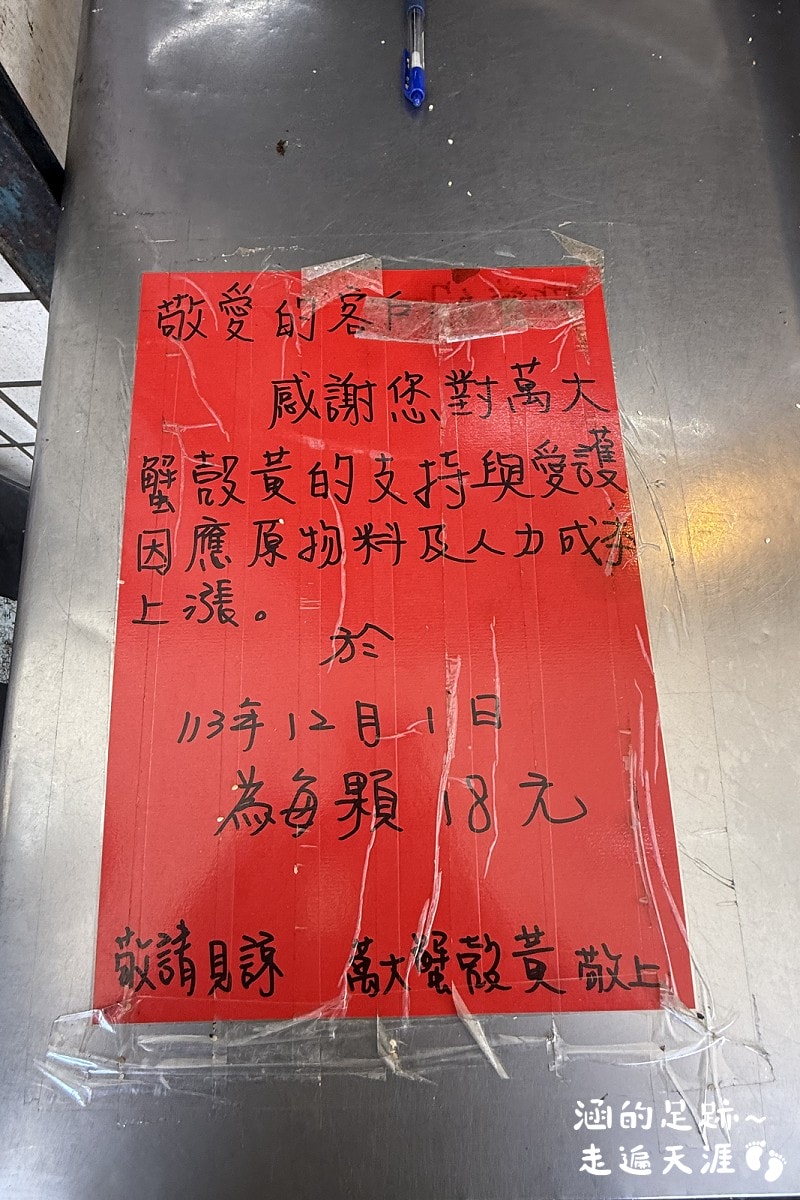 敬愛的客戶
感謝您對萬大
蟹殼黃的支持與愛護
因應原物料及人力成本
上漲。
於
113年12月1日
為每顆18元
敬請見諒 萬大蟹殼黃 敬上
涵的足跡~
走遍天涯